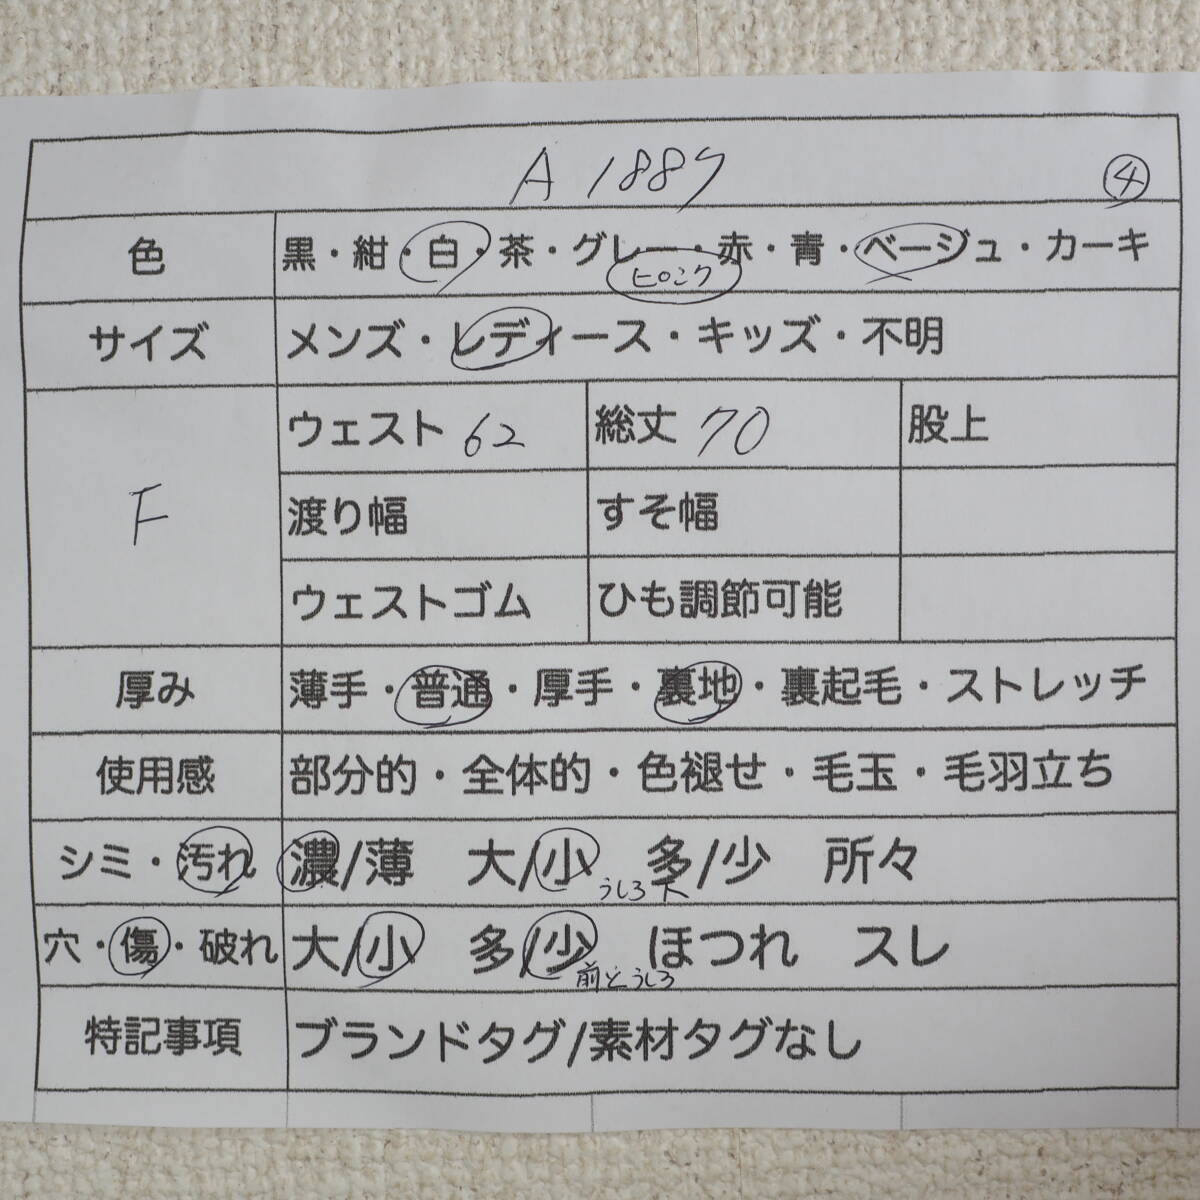 A 1887 ④
色 黒・紺・白・茶・グレー・赤・青・ベージュ・カーキ
ピンク
サイズ メンズ・レディース・キッズ・不明
F
ウェスト 62 総丈 70 股上
渡り幅 すそ幅
ウェストゴム ひも調節可能
厚み 薄手・普通・厚手・裏地・裏起毛・ストレッチ
使用感 部分的・全体的・色褪せ・毛玉・毛羽立ち
シミ・汚れ 濃/薄 大/小 多/少 所々
うしろ下
穴・傷・破れ 大/小 多/少 ほつれ スレ
前とうしろ
特記事項 ブランドタグ/素材タグなし